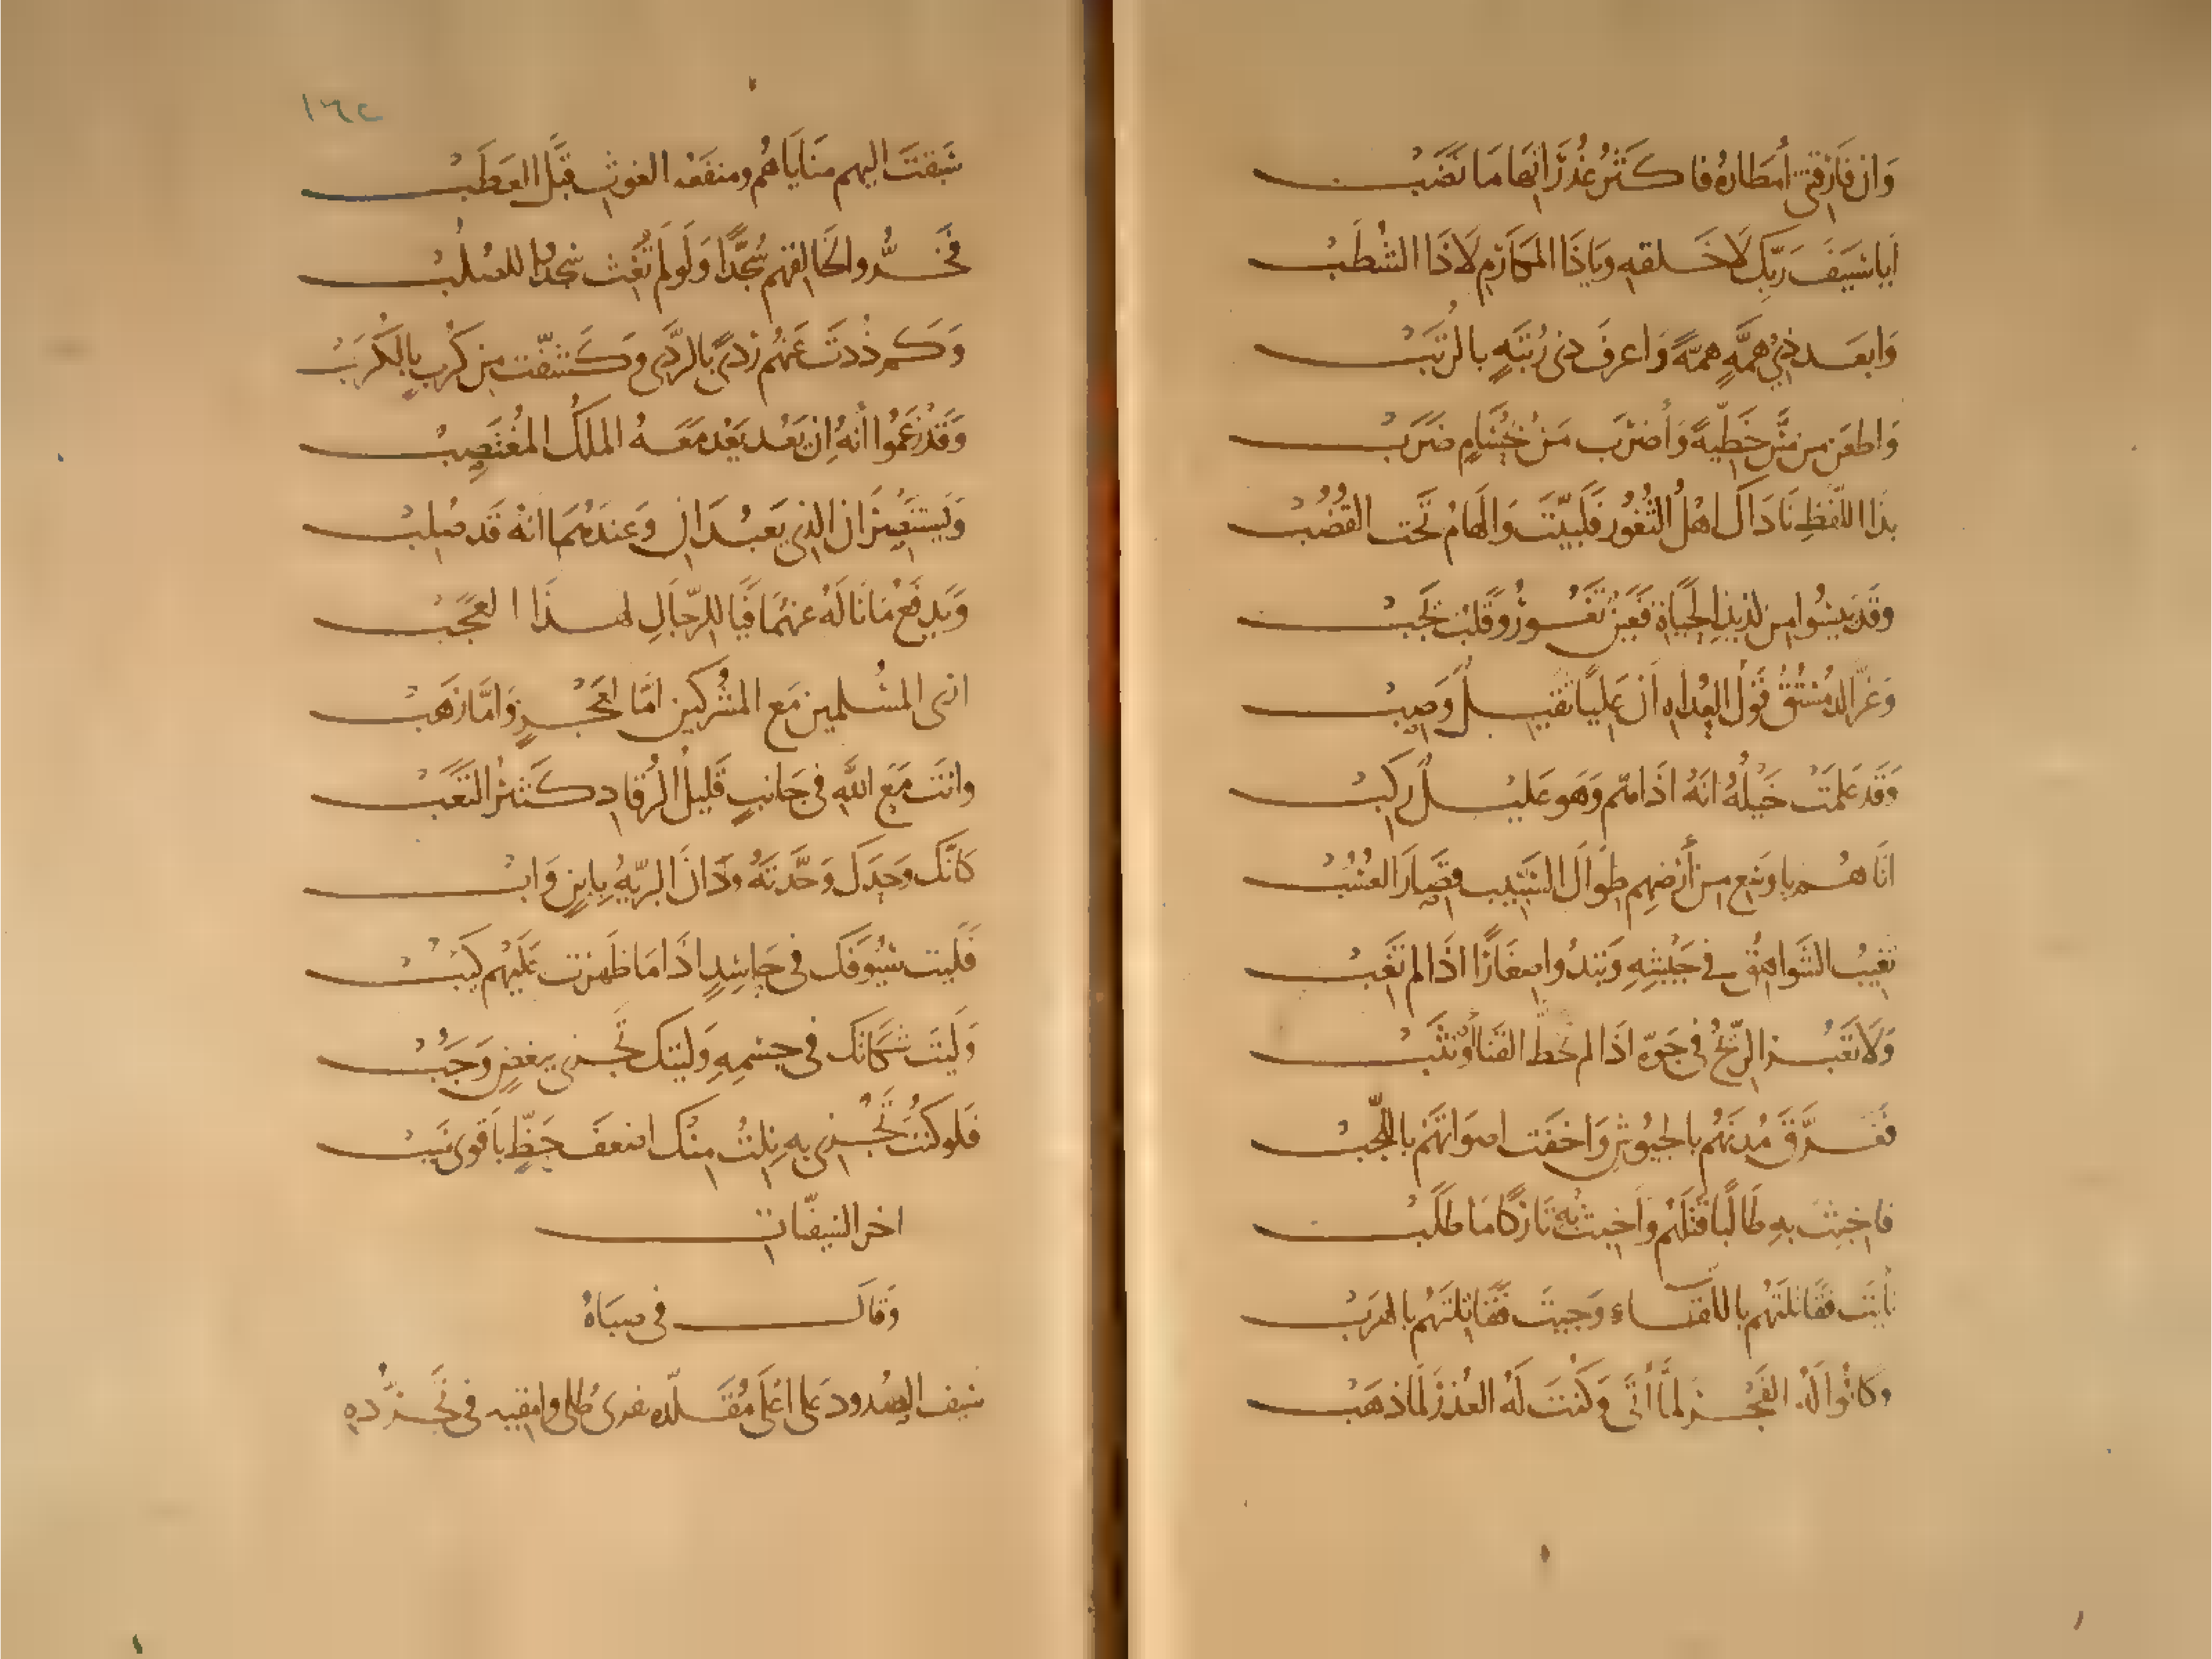 وَان فَارَقتني أَمطَارُهُ فاكثرُ غُدرَانِهَا مَا نَضَبْ
أَيا سَيفَ رَبِّكَ لَا خَلقهِ وَيَاذَا المَكَارِمِ لَا ذَا الشُطَبْ
وَابعَد ذي هِمَّةٍ هِمَّةً وَاعرفَ ذي رُتبَةٍ بالرُّتَبْ
وَاطعَن من مَسَّ خَطِّيةً وَأضرَبَ مَن بحُسَامٍ ضَرَبْ
بذَا اللفظِ نَادَاكَ اهلُ الثُّغُور فَلَبَّيتَ وَالهَامُ تحت القُضُبْ
وقَد يَئِسُوا من لذيذِ الحَيَاة فَعَينٌ تَغُورُ وقَلبٌ يَجِبْ
وَغَرَّ الدُمُستُقَ قَولُ العُداهِ أن عَلِيًا ثقيلٌ وَصِبْ
وَقَد عَلِمَتْ خَيلُهُ انَهُ اذَا همّ وَهَو عَليلٌ رَكِبْ
اتَاهُم باوسَع من أَرضِهِم طِوَالَ السَبيب قِصَارَ العُسُبْ
تغيبُ الشَواهِقُ في جَيشِهِ وَتَبدُوا صِغَارًا اذَا لم تَغِبْ
وَلَا تَعبُر الرّيحُ في جَوّه اذَا لم تخطَّ القَنَا أو تَثِبْ
فغَرَّقَ مُدنَهُم بالجيُوشِ وَاخفَت اصوَاتَهُم باللّجَبْ
فاخبِث بهِ طَالبًا قتلَهُم وَاخبِث بهِ تَارِكًا مَا طَلَبْ
نأيتَ فقَاتَلَهُم باللقَاء وَجيتَ فقَاتَلَهُم بالهَرَبْ
وكانُوا لَهُ الفَخر لمَّا أتَى وَكُنتَ لَهُ العُذرَ لمَا ذهَبْ
١٦٢
سَبَقتَ اليهم مَنَايَاهُم ومنفَعَه الغوثِ قبلَ العَطَبْ
فَخَرُّوا لخَالقهِم سُجَّدًا وَلَو لم تُغِث سَجدُوا للصُلُبْ
وَكم ذُدتَ عَنهُم رَدىً بالرَّدى وَكَشَّفت من كُرَبٍ بالكُرَبْ
وَقَد زَعَمُوا أَنهُ إن يَعُد يَعُد مَعَهُ الملكُ المُعتَصِبْ
وَيَستَنصِرَان الذي يَعبُدَانِ وَعندَهُمَا انهُ قَد صُلِبْ
وَيَدفَع مَا نَالَهُ عَنهُمَا فَيَا للرِّجَالِ لهذَا العَجَبْ
ارى المُسلمين مَع المُشركين امَّا لعَجزٍ وَامَّا رَهَبْ
وانتَ مَعَ اللَّهِ في جَانبٍ قَليلُ الرُقاد كَثيرُ التَعَبْ
كَانَّكَ وَحدَكَ وَحَّدتَهُ وَدَانَ البريّهُ بِابنٍ وَابْ
فَلَيت سُيُوفَكَ في حَاسِدٍ اذَا مَا ظَهرت عَلَيهُم كَئِبْ
وَلَيتَ شَكَاتكَ في جسمِهِ وَلَيتكَ تَجزي ببغضٍ وَحُبْ
فَلَو كنتَ تَجزي به نِلتُ منكَ اضعَفَ حَظٍّ بأَقوى سَبَبْ
اخر السيفيّات
وَقال في صِبَاهُ
سَيف الصُدود عَلى اعلَى مُقَلّده يفرى طُلى وامقيه في تَجَرُّده